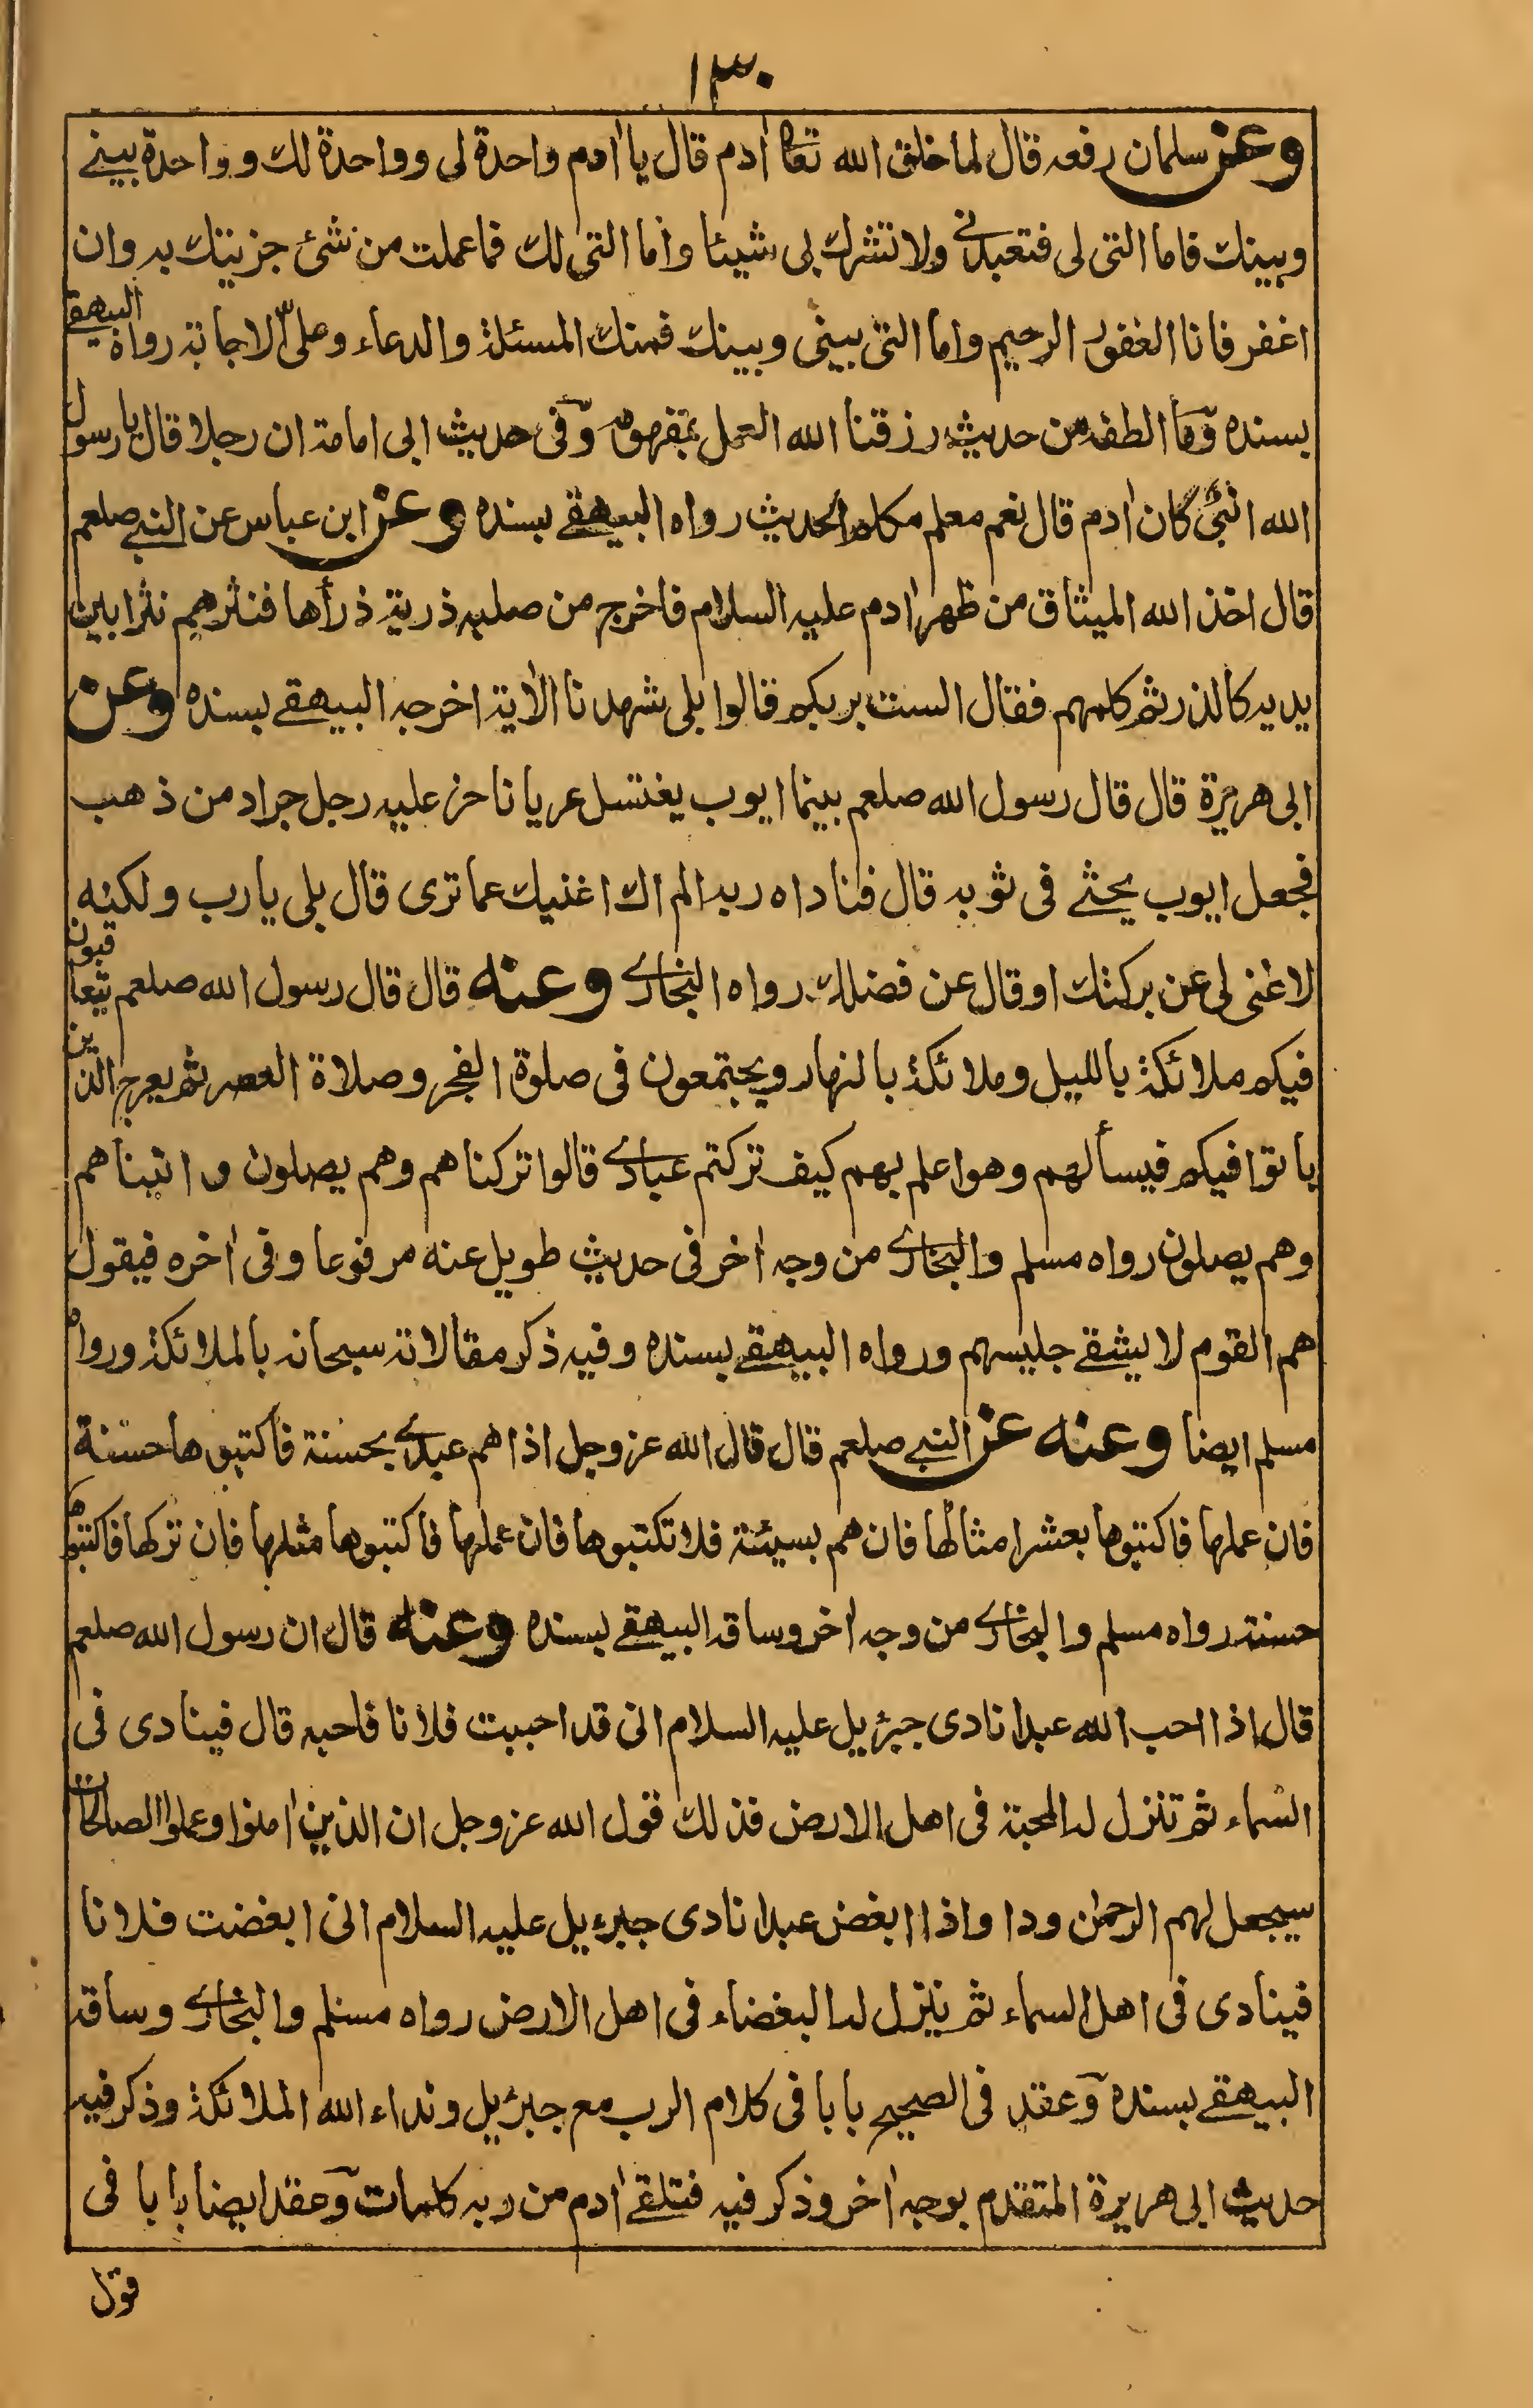 ١٣٠
وعن سلمان رفعه قال لما خلق الله تعا اٰدم قال يا اٰدم واحدة لى وواحدة لك وواحدة بينے
وبينك فاما التى لى فتعبدنے ولا تشرك بى شيئا واما التى لك فما عملت من شئ جزيتك به وان
اغفر فانا الغفور الرحيم واما التى بينى وبينك فمنك المسئلة والدعاء وعلىّ الاجابة رواه البيهقے
بسنده وما الطفه من حديث رزقنا الله العمل بمفهومه وفى حديث ابى امامة ان رجلا قال يا رسول
الله انبى كان اٰدم قال نعم معلم مكلم الحديث رواه البيهقے بسنده وعن ابن عباس عن النبے صلعم
قال اخذ الله الميثاق من ظهر اٰدم عليه السلام فاخرج من صلبه ذرية ذرأها فنثرهم نثرا بين
يديه كالذر ثم كلمهم فقال الست بربكم قالوا بلى شهدنا الاٰية اخرجه البيهقے بسنده وعن
ابى هريرة قال قال رسول الله صلعم بينما ايوب يغتسل عريانا خر عليه رجل جراد من ذهب
فجعل ايوب يحثے فى ثوبه قال فناداه ربه الم اك اغنيك عما ترى قال بلى يا رب ولكنه
لا غنى لى عن بركتك او قال عن فضلك رواه البخارے وعنه قال قال رسول الله صلعم يتعاقبون
فيكم ملائكة بالليل وملائكة بالنهار ويجتمعون فى صلوة الفجر وصلاة العصر ثم يعرج الذين
باتوا فيكم فيسألهم وهو اعلم بهم كيف تركتم عبادے قالوا تركناهم وهم يصلون و اتيناهم
وهم يصلون رواه مسلم والبخارے من وجه اٰخر فى حديث طويل عنه مرفوعا وفى اٰخره فيقول
هم القوم لا يشقے جليسهم ورواه البيهقے بسنده وفيه ذكر مقالاته سبحانه بالملائكة ورواه
مسلم ايضا وعنه عن النبے صلعم قال قال الله عز وجل اذا هم عبدے بحسنة فاكتبوها حسنة
فان عملها فاكتبوها بعشر امثالها فان هم بسيئة فلا تكتبوها فان عملها فاكتبوها مثلها فان تركها فاكتبوها
حسنة رواه مسلم والبخارے من وجه اٰخر وساقه البيهقے بسنده وعنه قال ان رسول الله صلعم
قال اذا احب الله عبدا نادى جبرئيل عليه السلام انى قد احببت فلانا فاحبه قال فينادى فى
السماء ثم تنزل له المحبة فى اهل الارض فذلك قول الله عز وجل ان الذين اٰمنوا وعملوا الصالحات
سيجعل لهم الرحمٰن ودا واذا ابغض عبدا نادى جبرءيل عليه السلام انى ابغضت فلانا
فينادى فى اهل السماء ثم ينزل له البغضاء فى اهل الارض رواه مسلم والبخارے وساقه
البيهقے بسنده وعقد فى الصحيح بابا فى كلام الرب مع جبرئيل ونداء الله الملائكة وذكر فيه
حديث ابى هريرة المتقدم بوجه اٰخر وذكر فيه فتلقے اٰدم من ربه كلمات وعقد ايضا بابا فى
قول